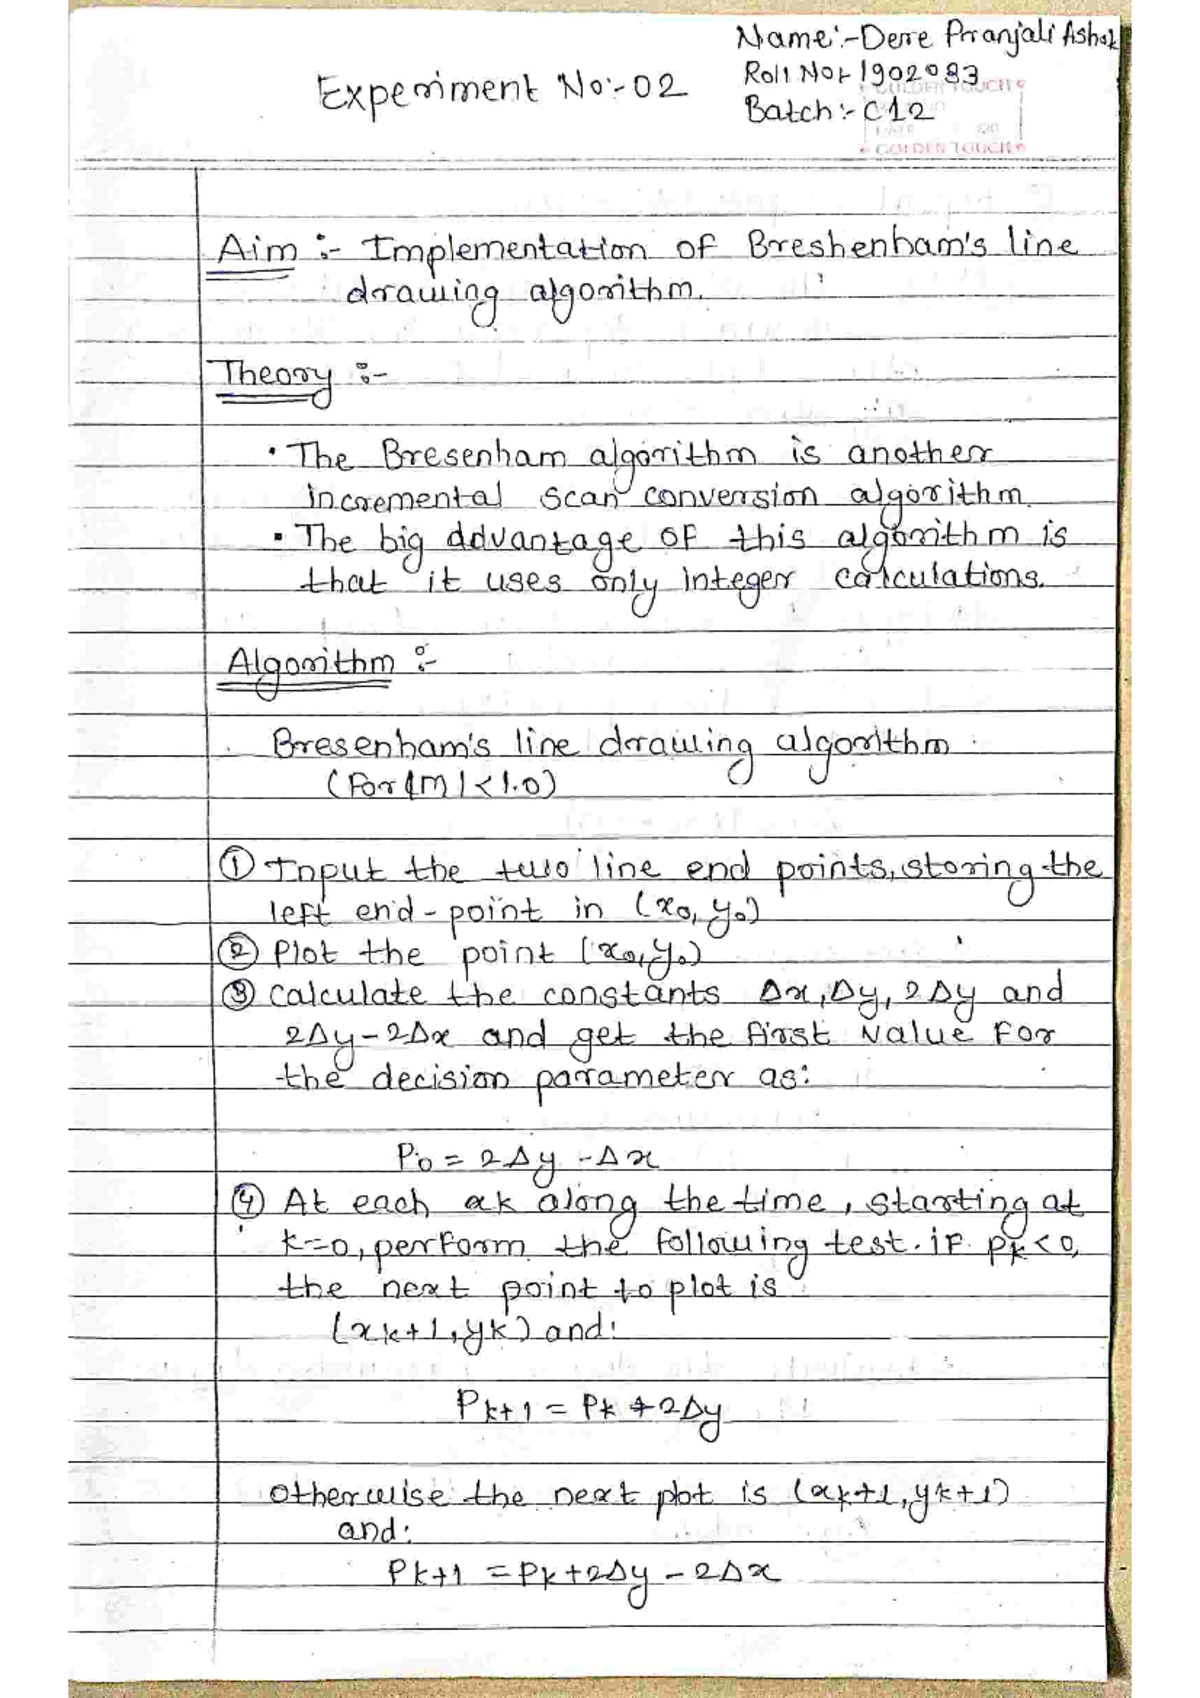 Name:-Dere Pranjali Ashok
Roll No:- 1902083
Batch:- C12
Experiment No:-02
GOLDEN TOUCH
Aim :- Implementation of Breshenham's line
drawing algorithm.
Theory :-
• The Bresenham algorithm is another
incremental scan conversion algorithm.
• The big advantage of this algorithm is
that it uses only integer calculations.
Algorithm :-
Bresenham's line drawing algorithm
(For |m| < 1.0)
① Input the two line end points, storing the
left end-point in (x0, y0)
② Plot the point (x0, y0)
③ Calculate the constants Δx, Δy, 2Δy and
2Δy - 2Δx and get the first value for
the decision parameter as:
P0 = 2Δy - Δx
④ At each xk along the time, starting at
k=0, perform the following test. if pk < 0,
the next point to plot is
(xk+1, yk) and:
Pk+1 = Pk + 2Δy
otherwise the next plot is (xk+1, yk+1)
and:
Pk+1 = Pk + 2Δy - 2Δx